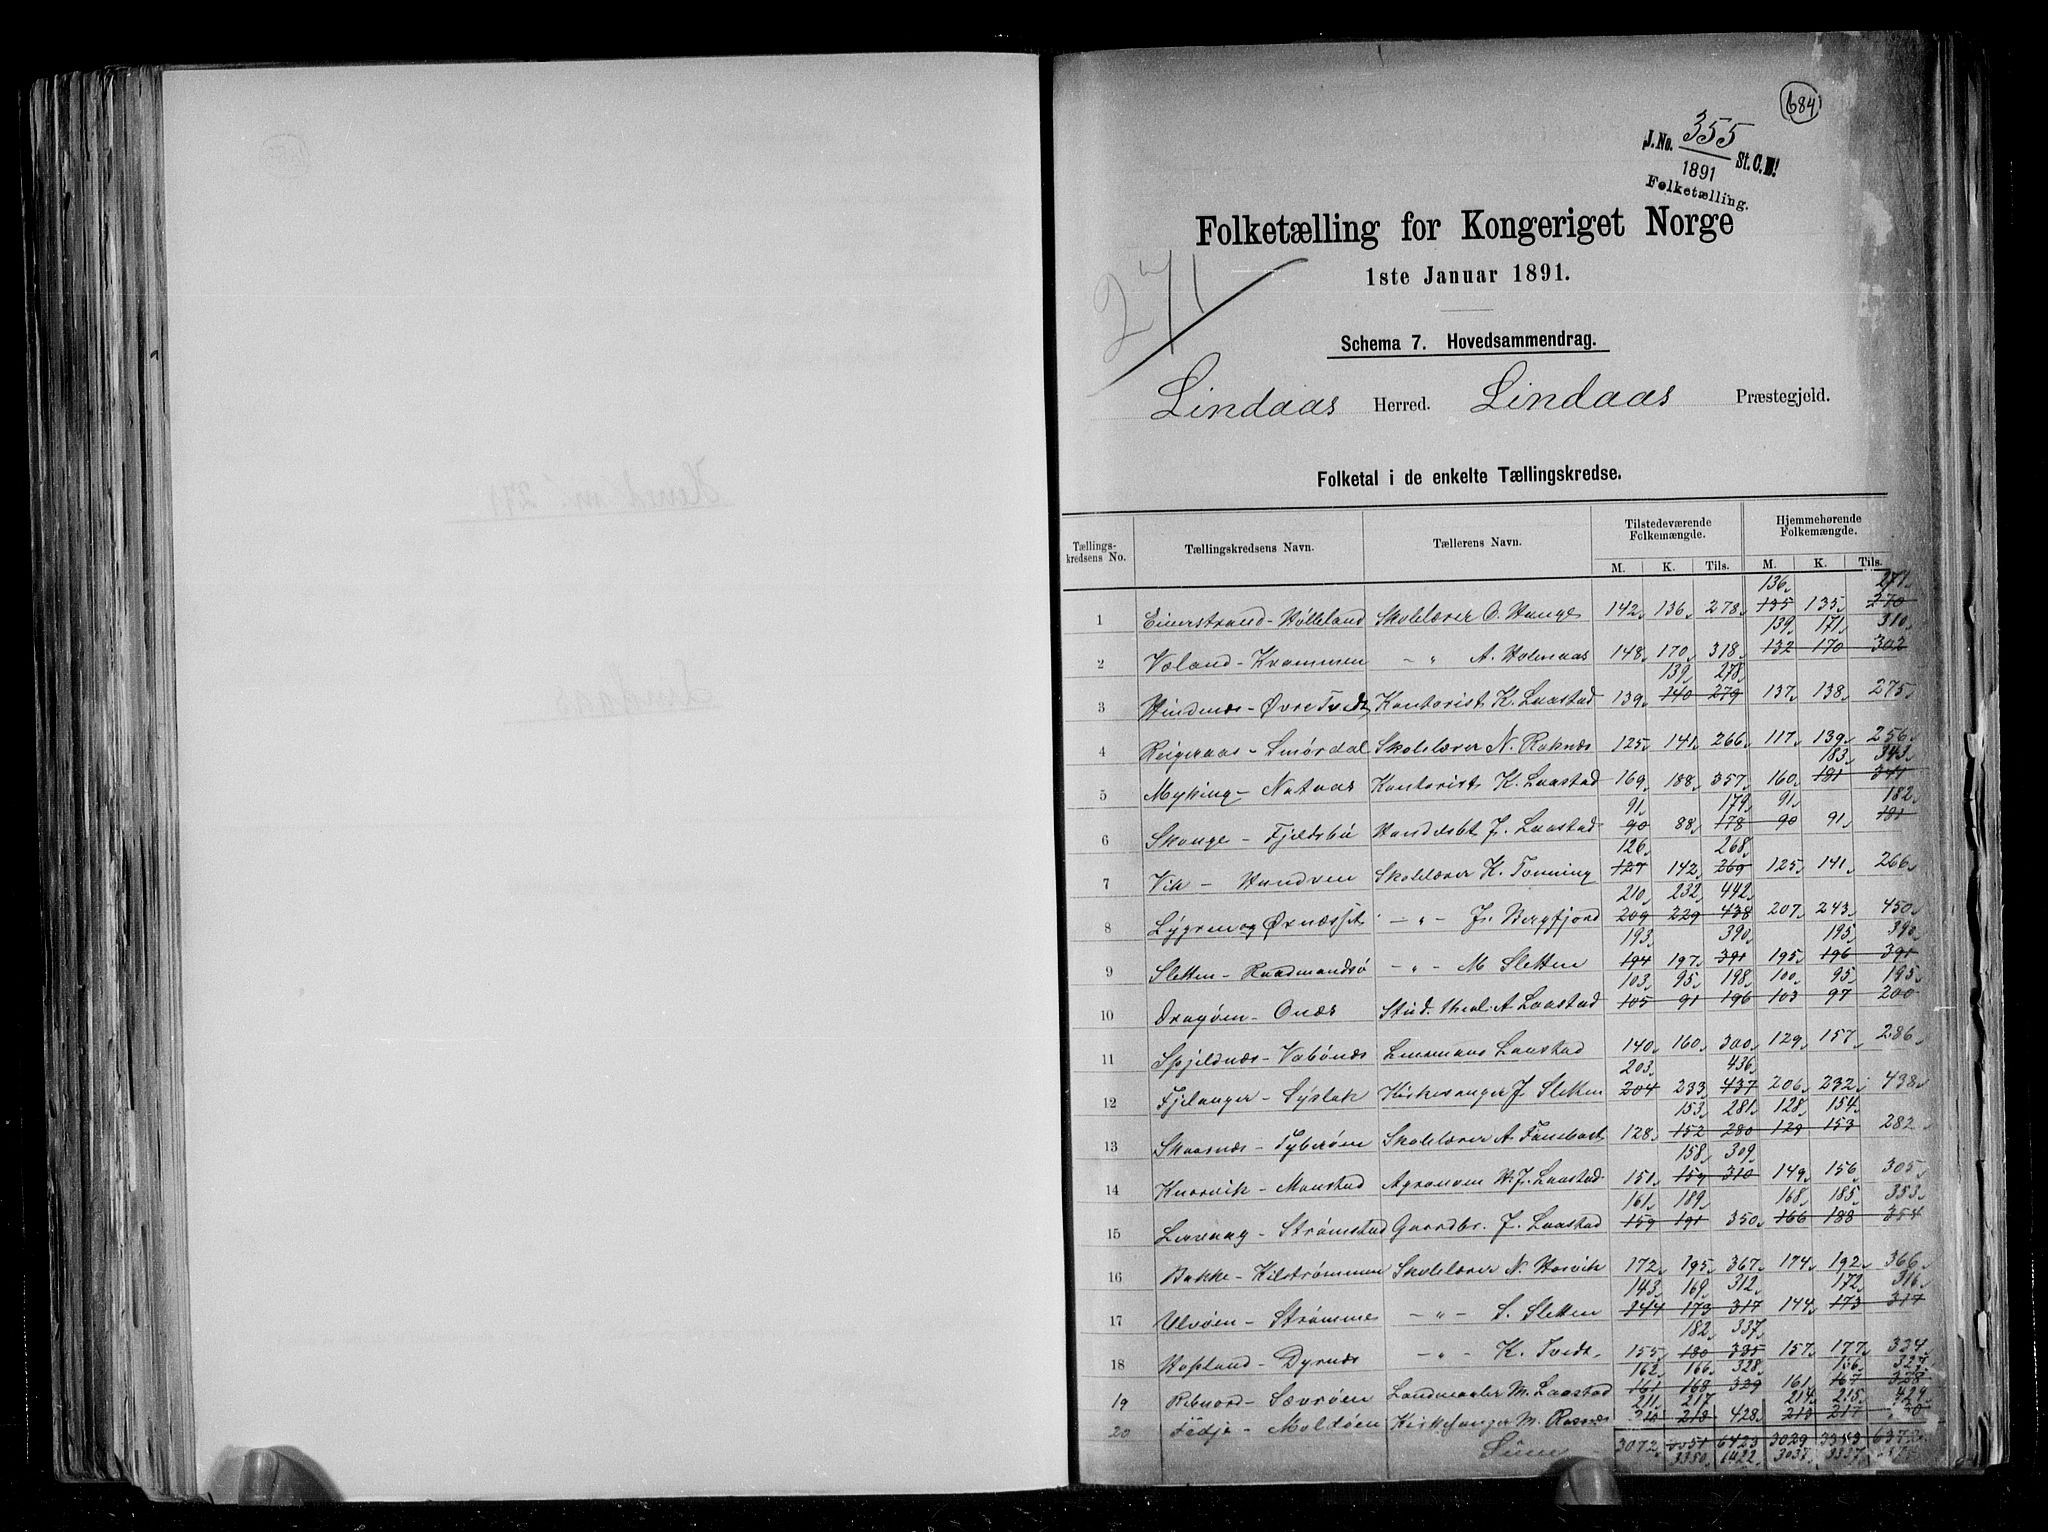 684
J.No. 355 St. C. B.
1891
Folketælling.
Folketælling for Kongeriget Norge
1ste Januar 1891.
271
Schema 7. Hovedsammendrag.
Lindaas Herred. Lindaas Præstegjeld.
Folketal i de enkelte Tællingskredse.
Tællings-kredsens No. Tællingskredsens Navn. Tællerens Navn. Tilstedeværende Folkemængde. Hjemmehørende Folkemængde.
M. K. Tils. M. K. Tils.
136 271
1 Skolelærer O. Hauge 142 136 278 135 135 270
139 171 310
2 Væland - Kvammen - " A. Holmaas 148 170 318 132 170 302
139 278
3 Hindnæs - Øvre Tvedt Kontorist K. Laastad 139 140 279 137 138 275
4 Reigeraas - Smørdal Skolelærer N. Roknæs 125 141 266 117 139 256
183 343
5 Myking - Natvaas Kontorist K. Laastad 169 188 357 160 181 341
91 179 91 182
6 Skauge - Fjeldsbø J. Laastad 90 88 178 90 91 181
126 268
7 Vik - Hundven Skolelærer K. Tonning 127 142 269 125 141 266
210 232 442
8 Lygren og - " - J. Bergfjord 209 229 438 207 243 450
193 390 195 390
9 Sletten - Raadmandsø - " - M Sletten 194 197 391 195 196 391
103 95 198 100 95 195
10 Dragøen - Onæs Stud. theol. A Laastad 105 91 196 103 97 200
11 Spjeldnæs - Vabønæs Lensmans Laastad 140 160 300 129 157 286
203 436
12 Fjelanger - Syslak Kirkesanger J Sletten 204 233 437 206 232 438
153 281 128 154
13 Skaasnæs - Tyberøen Skolelærer A Fanebost 128 152 280 129 153 282
158 309
14 Knarvik - Monstad Agronom H. J. Laastad 151 159 310 149 156 305
161 189 168 185 353
15 Lervaag - Strømstad Gaardbr. J. Laastad 159 191 350 166 188 354
16 Bakke - Kilstrømmen Skolelærer N. Horvik 172 195 367 174 192 366
143 169 312 172 316
17 Ulvøen - Strømmes - " - S. Sletten 144 173 317 144 173 317
182 337
18 Hopland - Dyrnæs - " - K. Tvedt 155 180 335 157 177 334
162 166 328
19 Ribnord - Sævrøen Landmaaler M. Laastad 161 168 329 161 167 328
211 217 214 215 429
20 Fedje - Moldøen Kirkesanger M. 218 428 213 217
Sum 3072 6423 3029 3353 6372
3350 3037 3337